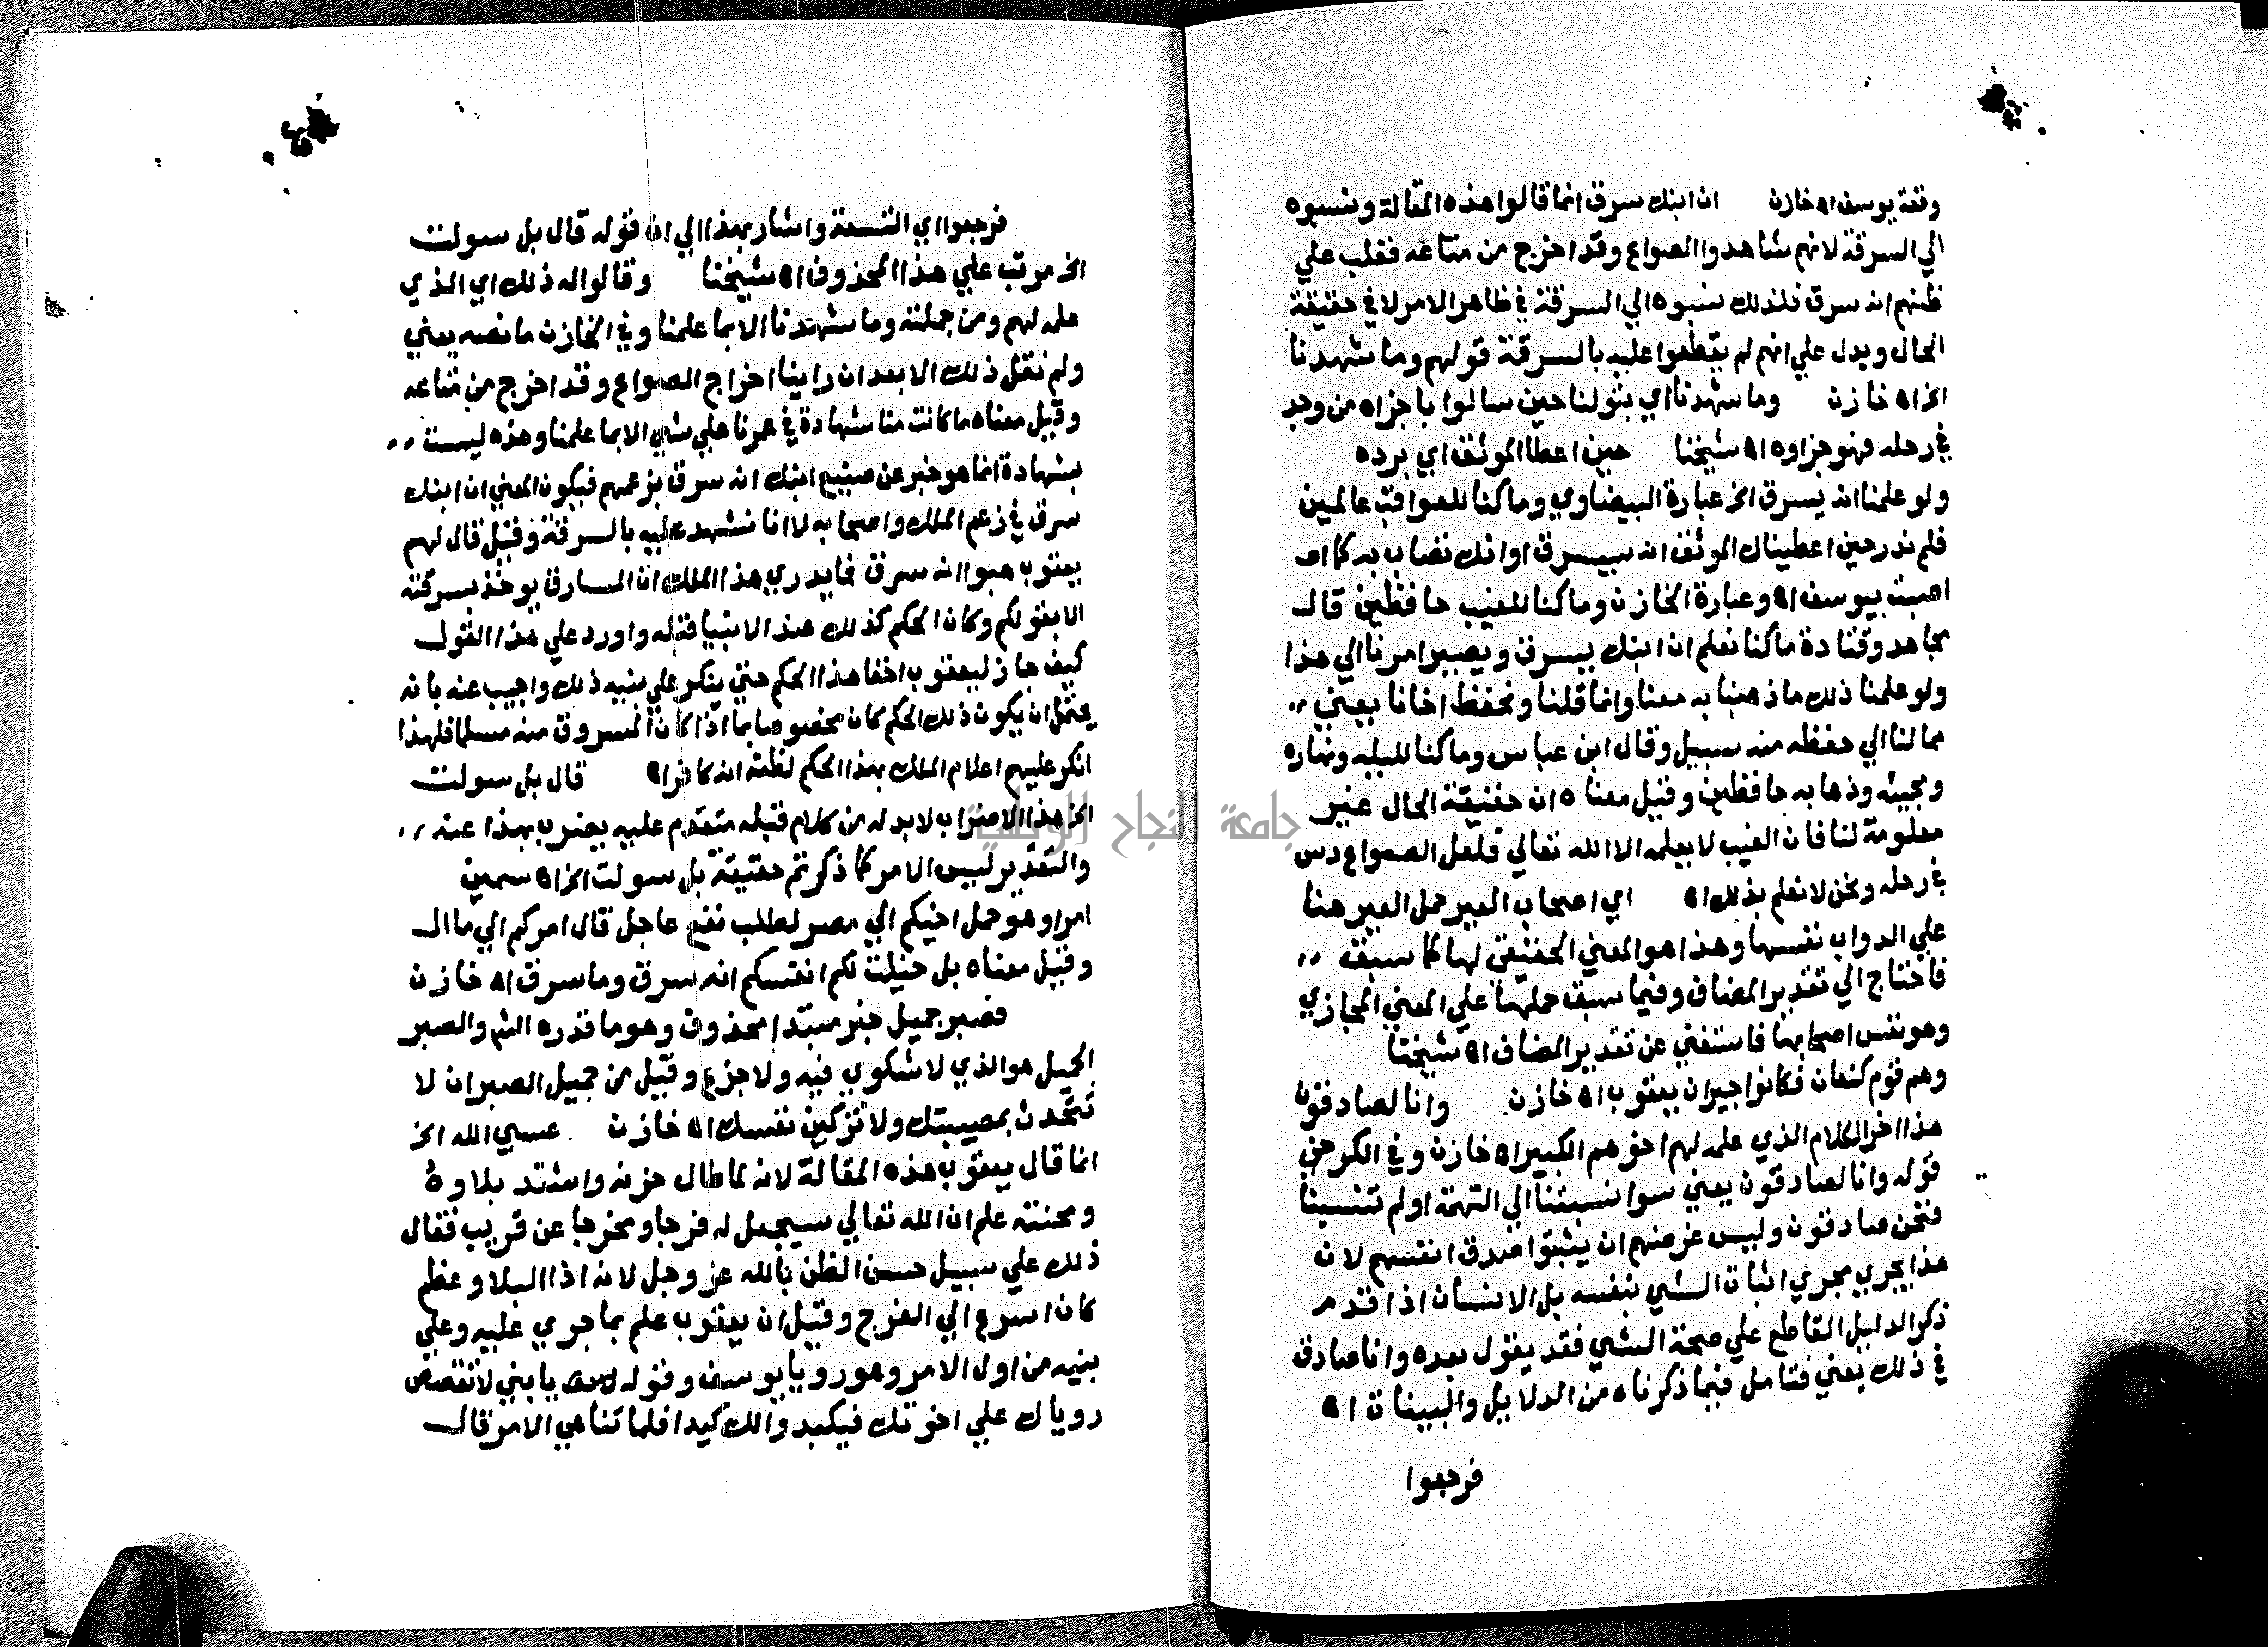 وقعة يوسف اه خازن ان ابنك سرق انما قالوا هذه المقالة ونسبوه
الي السرقة لانهم شاهدوا الصواع وقد اخرج من متاعه فغلب علي
ظنهم انه سرق فلذلك نسبوه الي السرقة في ظاهر الامر لا في حقيقة
الحال ويدل علي انهم لم يقطعوا عليه بالسرقة قولهم وما شهدنا
الخ اه خازن وما شهدنا اي بقولنا حين سالوا با جزاه من وجد
في رحله فهو جزاوه اه شيخنا حين اعطا الموثق اي برده
ولو علمنا انه يسرق الخ عبارة البيضاوي وما كنا للعواقب عالمين
فلم ندر حين اعطيناك الموثق انه سيسرق او انك تصاب به كما
اصبت بيوسف اه وعبارة الخازن وما كنا للغيب حافظين قال
مجاهد وقتادة ما كنا نعلم ان ابنك يسرق ويصير امرنا الي هذا
ولو علمنا ذلك ما ذهبنا به معنا وانما قلنا ونحفظ اخانا يعني
مما لنا الي حفظه منه سبيل وقال ابن عباس وما كنا لليله ونهاره
ومجيئه وذهابه حافظين وقيل معناه ان حقيقة الحال غير
معلومة لنا فان الغيب لا يعلمه الا الله تعالي فلعل الصواع دس
في رحله ونحن لا نعلم بذلك اه اي اصحاب العير حمل العير هنا
علي الدواب نفسها وهذا هو المعني الحقيقي لها كما سبق
فاحتاج الي تقدير المضاف وفيما سبق حملها علي المعني المجازي
وهو نفس اصحابها فاستغني عن تقدير المضاف اه شيخنا
وهم قوم كنعان فكانوا جيران يعقوب اه خازن. وانا لصادقون
هذا اخر الكلام الذي علمه لهم اخوهم الكبير اه خازن وفي الكرخي
قوله وانا لصادقون يعني سوا نسبتنا الي التهمة او لم تنسبنا
فنحن صادقون وليس غرضهم ان يثبتوا صدق انفسهم لان
هذا يجري مجري اثبات الشي بنفسه بل الانسان اذا قدم
ذكر الدليل القاطع علي صحة الشي فقد يقول بعده وانا صادق
في ذلك يعني فتامل فيما ذكرناه من الدلايل والبينات اه
فرجعوا
فرجعوا اي التسعة واشار بهذا الي ان قوله قال بل سولت
الخ مرتب علي هذا المحذوف اه شيخنا وقالوا له ذلك اي الذي
علمه لهم ومن جملته وما شهدنا الا بما علمنا وفي الخازن ما نصه يعني
ولم نقل ذلك الا بعد ان راينا اخراج الصواع وقد اخرج من متاعه
وقيل معناه ما كانت منا شهادة في عمرنا علي شي الا بما علمنا وهذه ليست
بشهادة انما هو خبر عن صنيع ابنك انه سرق بزعمهم فيكون المعني ان ابنك
سرق في زعم الملك واصحابه لا انا نشهد عليه بالسرقة وقيل قال لهم
يعقوب هبوا انه سرق فما يدري هذا الملك ان السارق يوخذ بسرقته
الا بقولكم وكان الحكم كذلك عند الانبيا قبله واورد علي هذا القول
كيف جاز ليعقوب اخفا هذا الحكم حتي ينكر علي بنيه ذلك واجيب عنه بانه
يحتمل ان يكون ذلك الحكم كان مخصوصا بما اذا كان المسروق منه مسلما فلهذا
انكر عليهم اعلام الملك بهذا الحكم لظنه انه كافر اه قال بل سولت
الخ هذا الاضراب لابد له من كلام قبله متقدم عليه يضرب بهذا عنه
والتقدير ليس الامر كما ذكرتم حقيقة بل سولت الخ اه سمين
امرا وهو حمل اخيكم الي مصر لطلب نفع عاجل قال امركم الي ما ال
وقيل معناه بل خيلت لكم انفسكم انه سرق وما سرق اه خازن
فصبر جميل خبر مبتدا محذوف وهو ما قدره الش والصبر
الجميل هو الذي لا شكوي فيه ولا جزع وقيل من جميل الصبر ان لا
تتحدث بمصيبتك ولا تزكين نفسك اه خازن. عسي الله الخ
انما قال يعقوب هذه المقالة لانه لما طال حزنه واشتد بلاوه
ومحنته علم ان الله تعالي سيجعل له فرجا ومخرجا عن قريب فقال
ذلك علي سبيل حسن الظن بالله عز وجل لانه اذا البلا وعظم
كان اسرع الي الفرج وقيل ان يعقوب علم بما جري عليه وعلي
بنيه من اول الامر وهو رويا يوسف وقوله يا بني لا تقصص
روياك علي اخوتك فيكيدوا لك كيدا فلما تناهي الامر قال
جامعة النجاح الوطنية